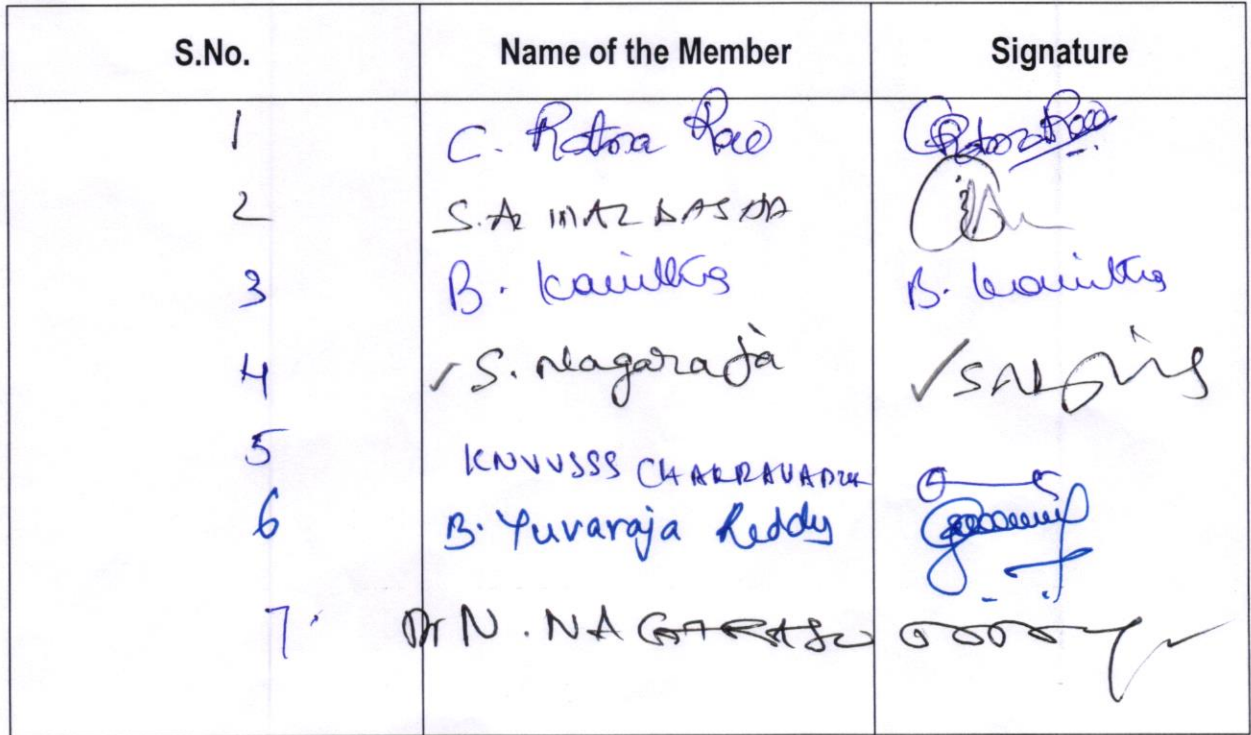 S.No. Name of the Member Signature
1 C. Ratna Rao C Ratna Rao
2 S.A
3 B. Kavitha B. Kavitha
4 ✓ S. Nagaraja ✓
5 KNVVSSS CHAKRAVADH
6 B. Yuvaraja Reddy
7. Dr N. NAGARAJU